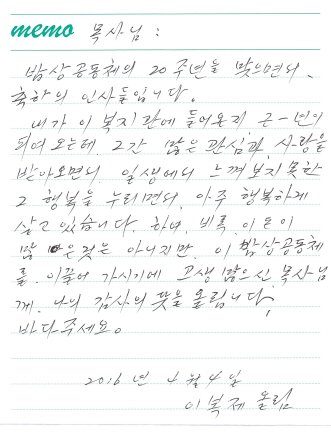 memo 목사님 :
밥상공동체의 20주년을 맞으면서,
축하의 인사를 드립니다.
내가 이 복지관에 들어온지 근 一년이
되어 오는데 그간 많은 관심과 사랑을
받아오면서 일생에서 느껴보지 못한
그 행복을 누리면서 아주 행복하게
살고 있습니다. 하여, 비록 이 돈이
많은 것은 아니지만, 이 밥상공동체
를 이끌어 가시기에 고생 많으신 목사님
께, 나의 감사의 뜻을 올립니다,
바다주세요.
2016년 4월 4일
이복제 올림